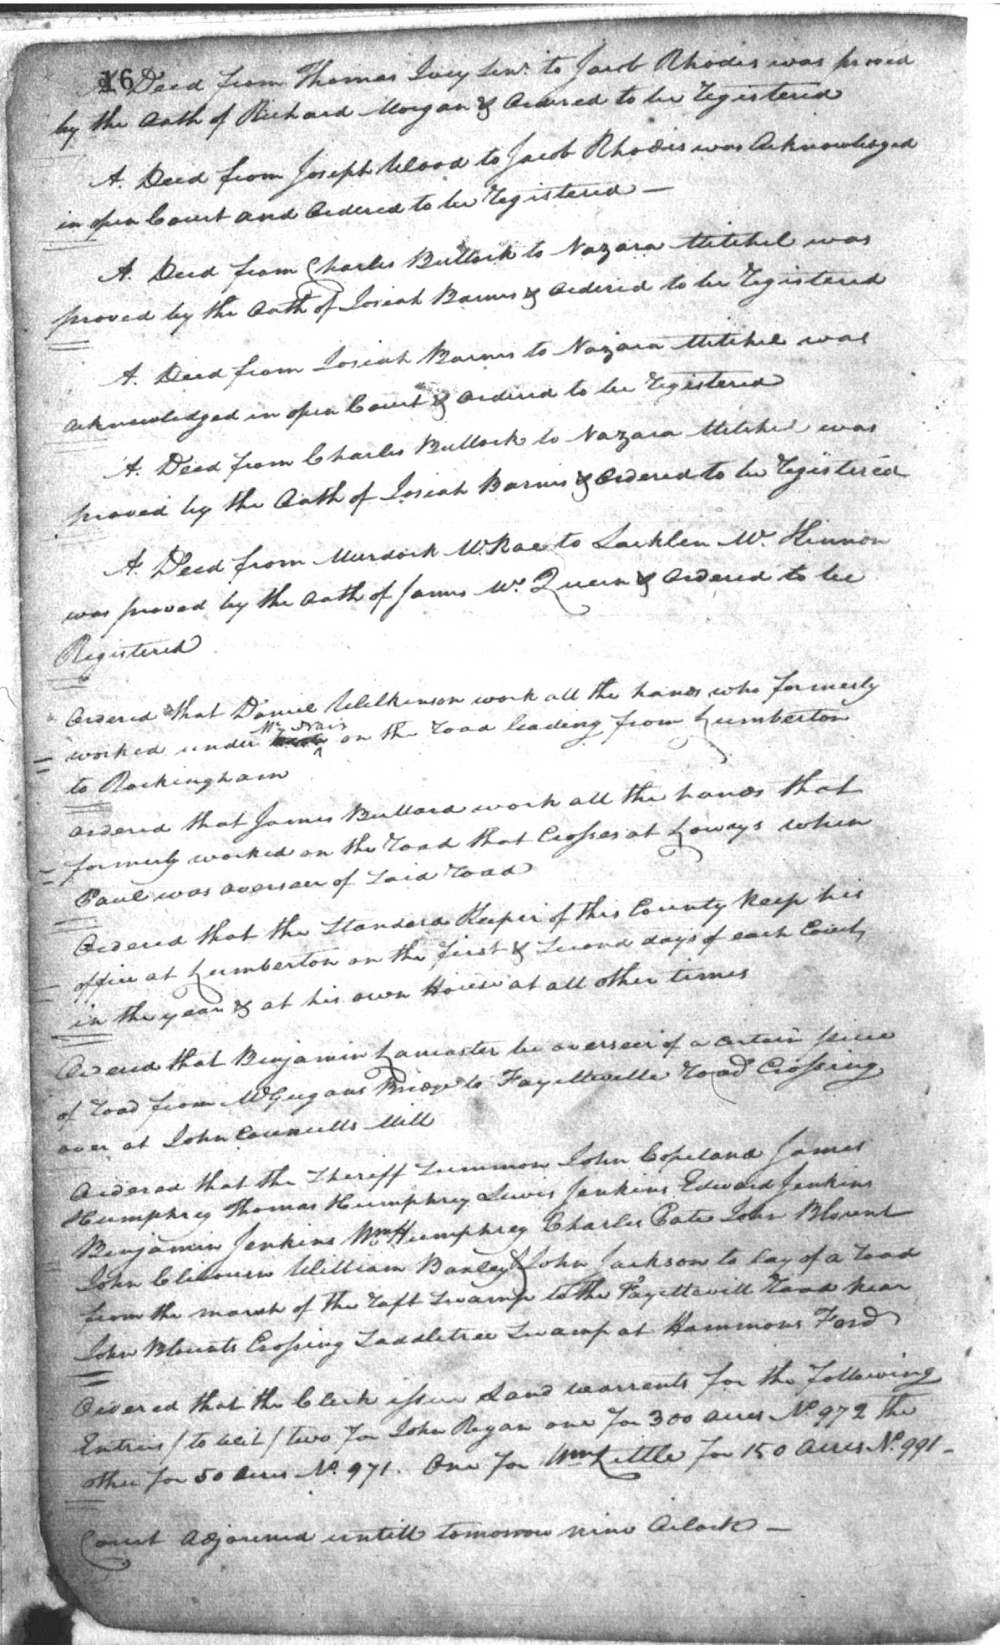 16
A Deed from Thomas Ivey Senr. to Jacob Rhodes was proved
by the Oath of Richard Morgan & Ordered to be Registered
A. Deed from Joseph Wood to Jacob Rhodes was Acknowledged
in open Court and Ordered to be Registered —
A. Deed from Charles Bullock to Nazara Mitchel was
proved by the Oath of Josiah Barnes & Ordered to be Registered
A. Deed from Josiah Barnes to Nazara Mitchel was
acknowledged in open Court & Ordered to be Registered
A. Deed from Charles Bullock to Nazara Mitchel was
proved by the Oath of Josiah Barnes & Ordered to be Registered
A. Deed from Murdock McRae to Lacklen Mc. Kinnon
was proved by the Oath of James Mc. Queen & Ordered to be
Registered
Ordered that Daniel Wilkinson work all the hands who formerly
Mc Nair
worked under on the road leading from Lumberton
to Rockingham
Ordered that James Bullard work all the hands that
formerly worked on the road that Crosses at Lowrys when
Paul was overseer of Said road
Ordered that the Standard Keeper of this County keep his
office at Lumberton on the first & Second days of each Court
in the year & at his own House at all other times
Ordered that Benjamin Lancaster be overseer of a certain piece
of road from McGugans Bridge to Fayetteville road Crossing
over at John Councills Mill
Ordered that the Sheriff Summon John Copeland James
Humphrey Thomas Humphrey Lewis Jenkins Edward Jenkins
Benjamin Jenkins Wm Humphrey Charles Pate John Blount
John Clibourn William Baxley & John Jackson to lay of a road
from the marsh of the raft Swamp to the Fayettevill road near
John Blounts Crossing Saddletree Swamp at Hammons Ford
Ordered that the Clerk issue Land warrents for the following
Entries / to wit / two for John Regan one for 300 acres No. 972 The
other for 50 acres No. 971. One for Wm Little for 150 Acres No. 991 –
Court Adjourned untill tomorrow nine Oclock —